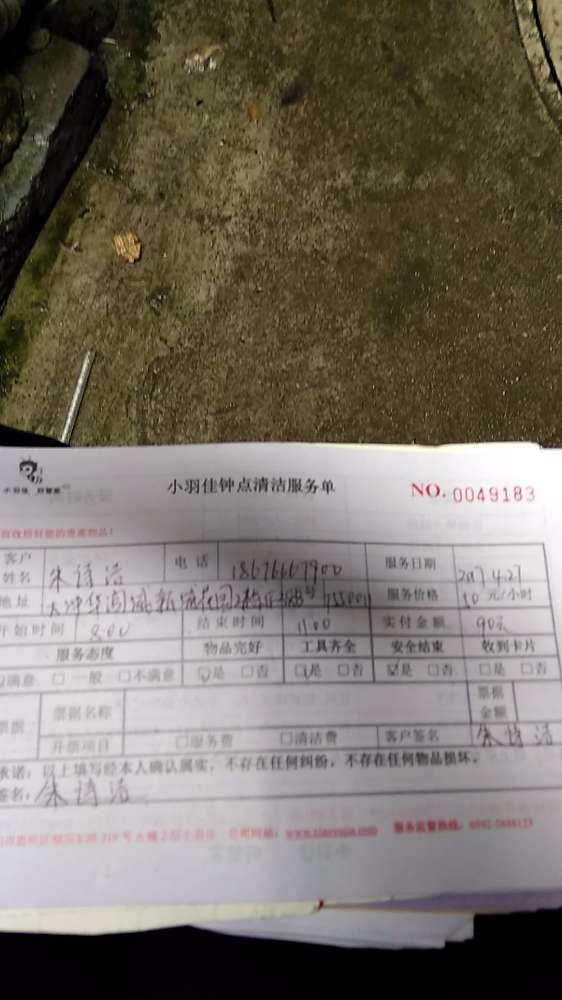 小羽佳 好管家
小羽佳钟点清洁服务单 NO. 0049183
客户姓名 朱诗洁 电话 18676667900 服务日期 2017.4.27
地址 服务价格 元/小时
开始时间 8:00 结束时间 11:00 实付金额 90元
服务态度 物品完好 工具齐全 安全结束 收到卡片
☑满意 □一般 □不满意 ☑是 □否 ☑是 □否 ☑是 □否 □是 □否
票据 票据名称 票据金额
开票项目 □服务费 □清洁费 客户签名 朱诗洁
承诺：以上填写经本人确认属实，不存在任何纠纷，不存在任何物品损坏。
签名：朱诗洁